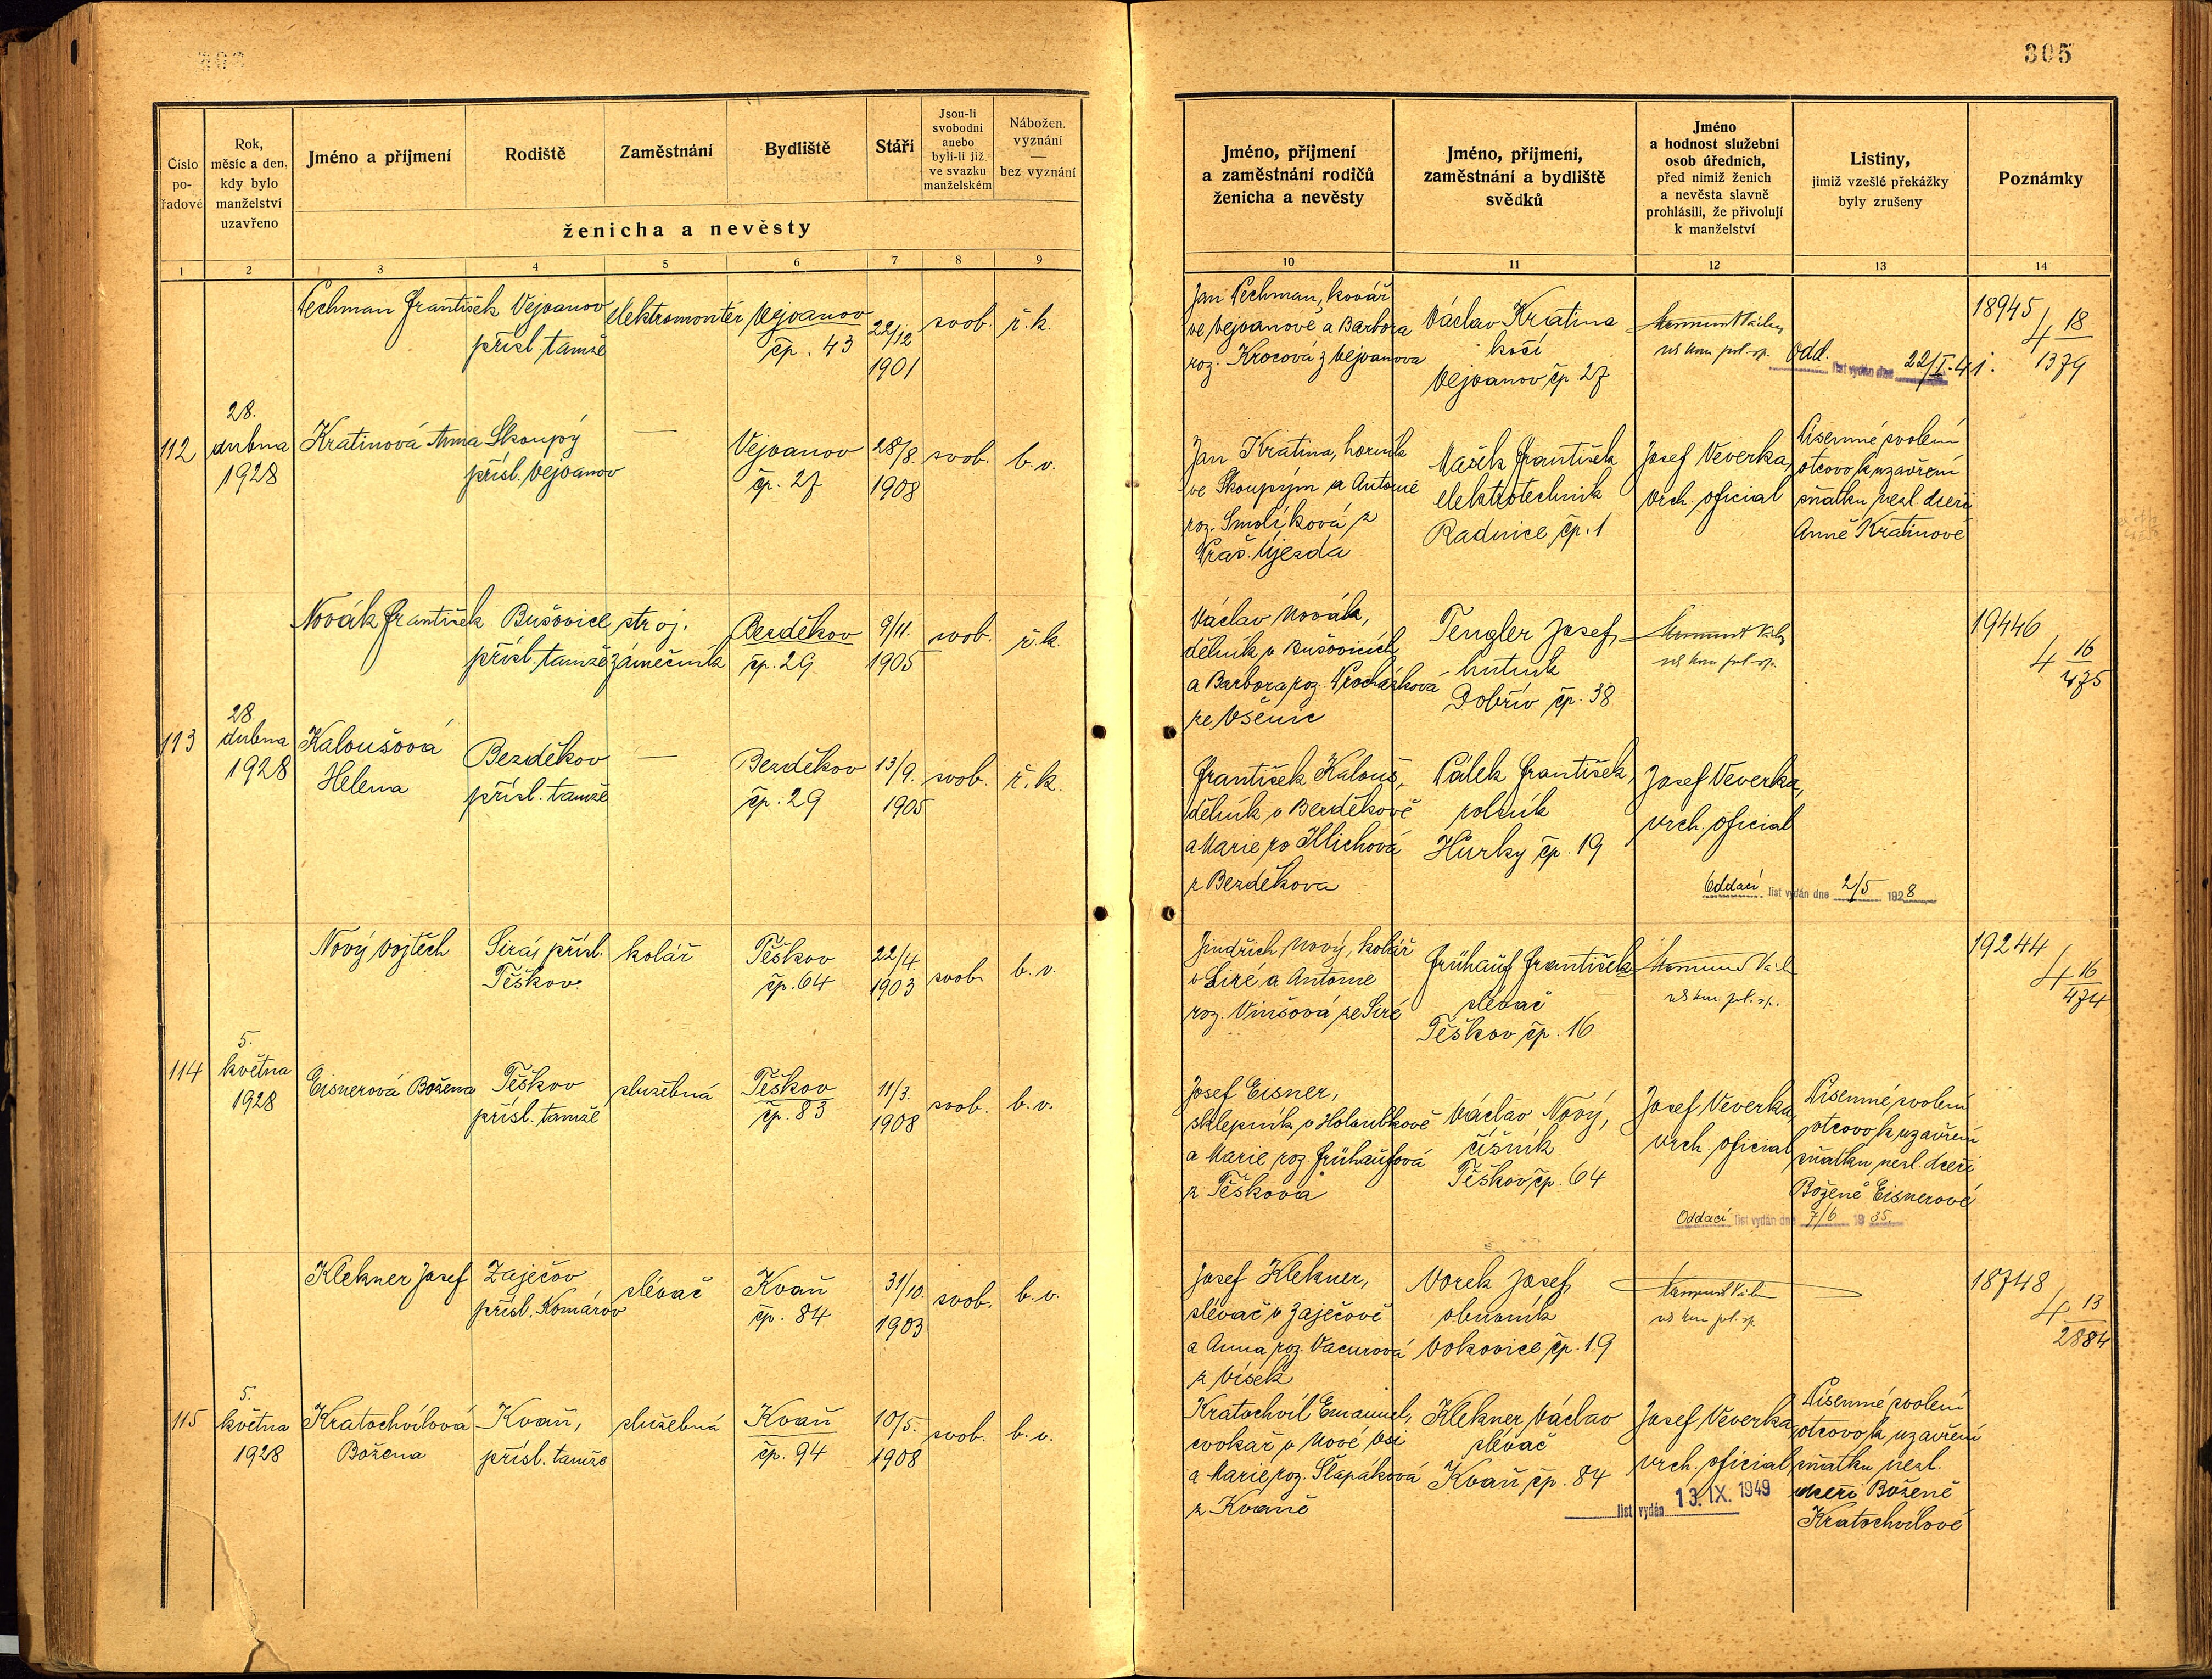 305
Číslo po-řadové
Rok, měsíc a den, kdy bylo manželství uzavřeno
Jméno a příjmení
Rodiště
Zaměstnání
Bydliště
Stáří
Jsou-li svobodni anebo byli-li již ve svazku manželském
Nábožen. vyznání — bez vyznání
ženicha a nevěsty
1 2 3 4 5 6 7 8 9
Pechman František Vejvanov elektromontér Vejvanov 22/12 svob. ř.k.
přísl. tamže čp. 43 1901
28.
112 dubna Kratinová Anna Skoupý — Vejvanov 28/8. svob. b.v.
1928 přísl. Vejvanov čp. 27 1908
Novák František Bušovice stroj. Bezděkov 9/11. svob. ř.k.
přísl. tamže zámečník čp. 29 1905
28.
113 dubna Kaloušová Bezděkov — Bezděkov 13/9. svob. ř.k.
1928 Helena přísl. tamže čp. 29 1905
Nový Vojtěch Sirá, přísl. kolář Těškov 22/4. svob. b.v.
Těškov. čp. 64 1903
5.
114 května Eisnerová Božena Těškov služebná Těškov 11/3. svob. b.v.
1928 přísl. tamže čp. 83 1908
Klekner Josef Zaječov slévač Kvaň 31/10. svob. b.v.
přísl. Komárov čp. 84 1903
5.
115 května Kratochvílová Kvaň, služebná Kvaň 10/5. svob. b.v.
1928 Božena přísl. tamže čp. 94 1908
Jméno, příjmení a zaměstnání rodičů ženicha a nevěsty
Jméno, příjmení, zaměstnání a bydliště svědků
Jméno a hodnost služební osob úředních, před nimiž ženich a nevěsta slavně prohlásili, že přivolují k manželství
Listiny, jimiž vzešlé překážky byly zrušeny
Poznámky
10 11 12 13 14
Jan Pechman, kovář
ve Vejvanově a Barbora
roz. Krocová z Vejvanova
Václav Kratina
kočí
Vejvanov čp 27
Odd. list vydán dne 22/I.41.
18945
4 18
1379
Jan Kratina, horník
ve Skoupým a Antonie
roz. Smolíková z
Praš. Újezda
Mašek František
elektrotechnik
Radnice čp. 1
Josef Veverka,
vrch. oficial
Písemné svolení
otcovo k uzavření
sňatku nezl. dceři
Anně Kratinové
Václav Novák,
dělník v Bušovicích
a Barbora roz. Procházková
ze Všenic
Tengler Josef,
hutník
Dobřív čp. 38
19446
4 16
475
František Kalouš,
dělník v Bezděkově
a Marie ro Illichová
z Bezděkova
Pálek František,
rolník
Hůrky čp. 19
Josef Veverka,
vrch. oficial
Oddací list vydán dne 2/5 1928
Jindřich Nový, kolář
v Siré a Antonie
roz. Vinšová ze Siré
Frühauf František
slévač
Těškov čp. 16
19244
4 16
474
Josef Eisner,
sklepník v Holoubkově
a Marie roz Frühaufová
z Těškova
Václav Nový,
číšník
Těškov čp. 64
Josef Veverka,
vrch. oficial
Písemné svolení
otcovo k uzavření
sňatku nezl. dceři
Boženě Eisnerové
Oddací list vydán dne 7/6 1935
Josef Klekner,
slévač v Zaječově
a Anna roz. Vacurová
z Vísek
Vorek Josef,
obuvník
Vokovice čp. 19
18748
4 13
2884
Kratochvíl Emanuel,
cvokař v Nové Vsi
a Marie roz. Šlapáková
z Kvaně
Klekner Václav
slévač
Kvaň čp. 84
Josef Veverka
vrch. oficial
Písemné svolení
otcovo k uzavření
sňatku nezl.
dceři Boženě
Kratochvílové
list vydán 13. IX. 1949